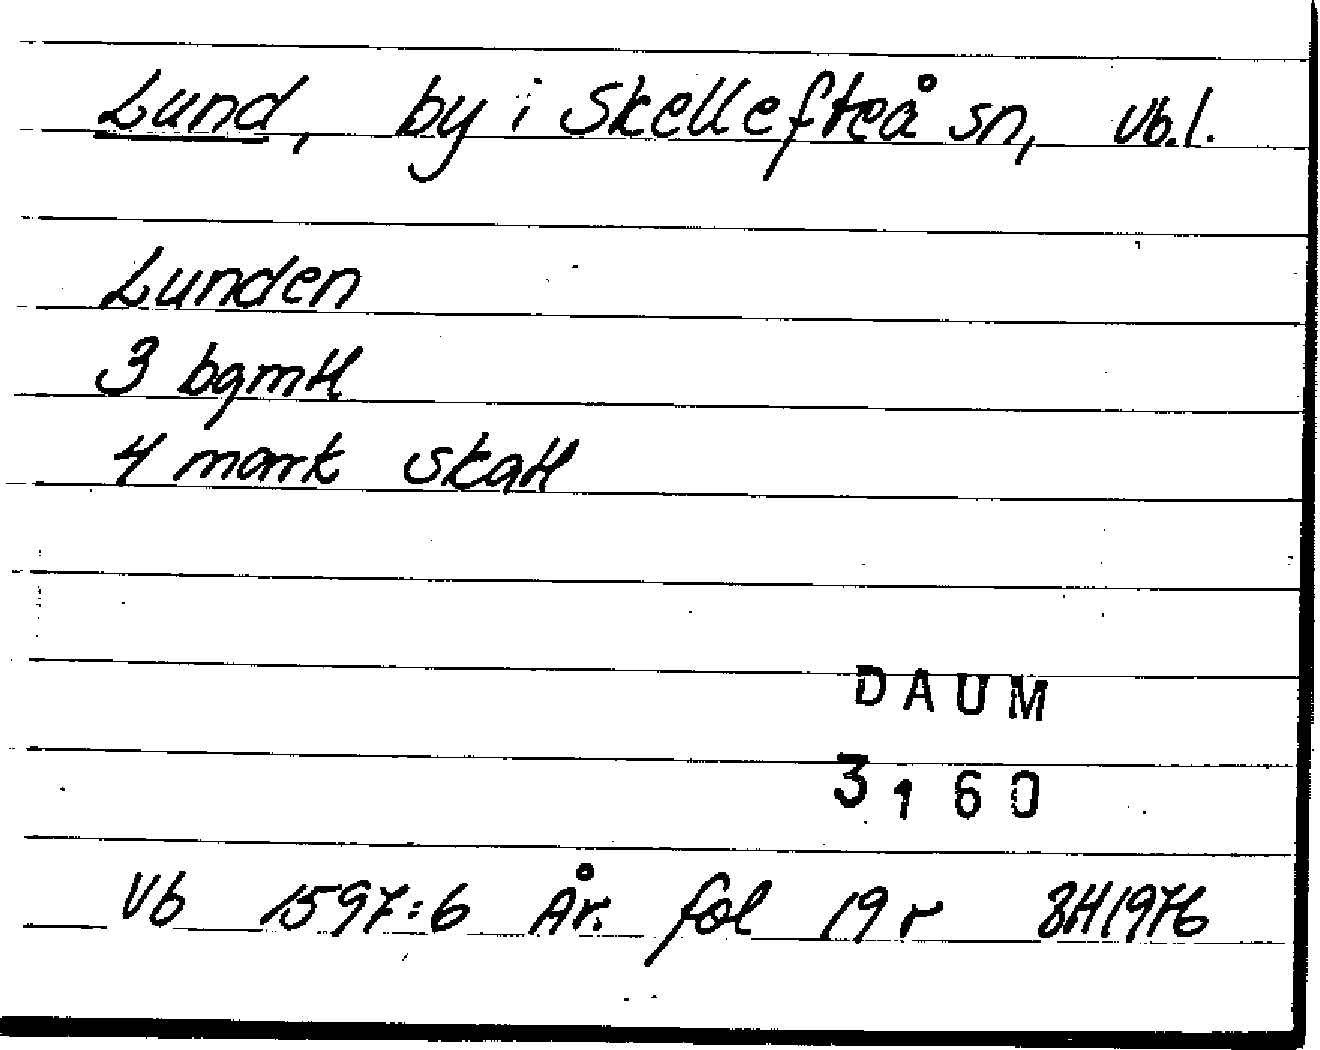 Lund, by i Skellefteå sn, Vb.l.
Lunden
3 bgmtl
4 mark skatt
DAUM
3160
Vb 1597:6 År. fol 19 r BH1976